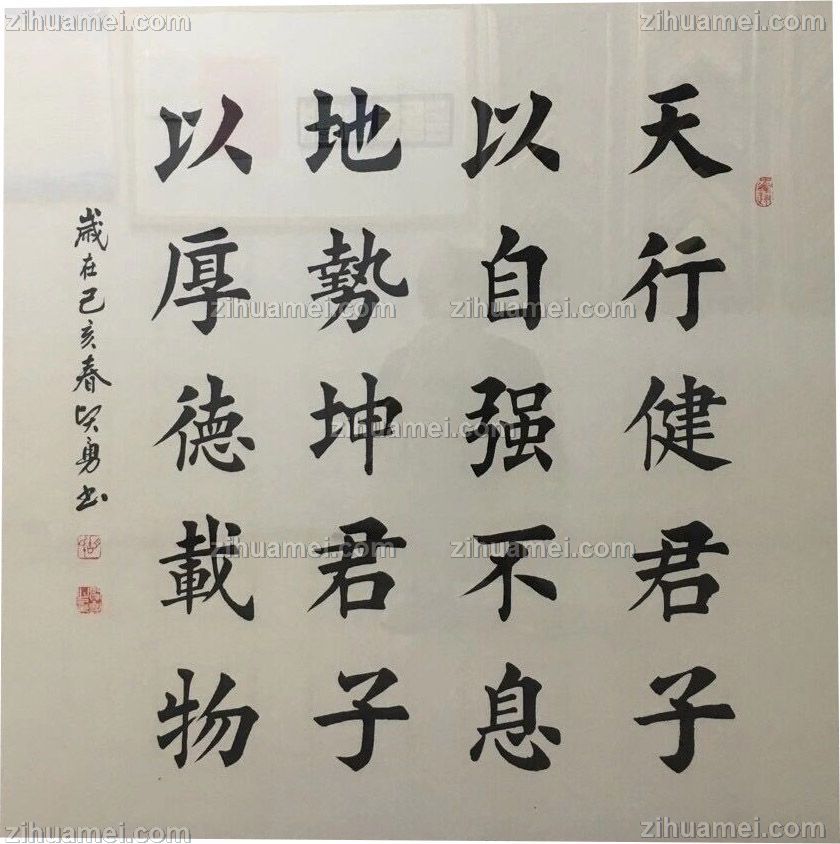 天行健君子
以自强不息
地勢坤君子
以厚德載物
歲在己亥春賢勇书
zihuamei.com
zihuamei.com
zihuamei.com
zihuamei.com
zihuamei.com
zihuamei.com
zihuamei.com
zihuamei.com
zihuamei.com
zihuamei.com
zihuamei.com